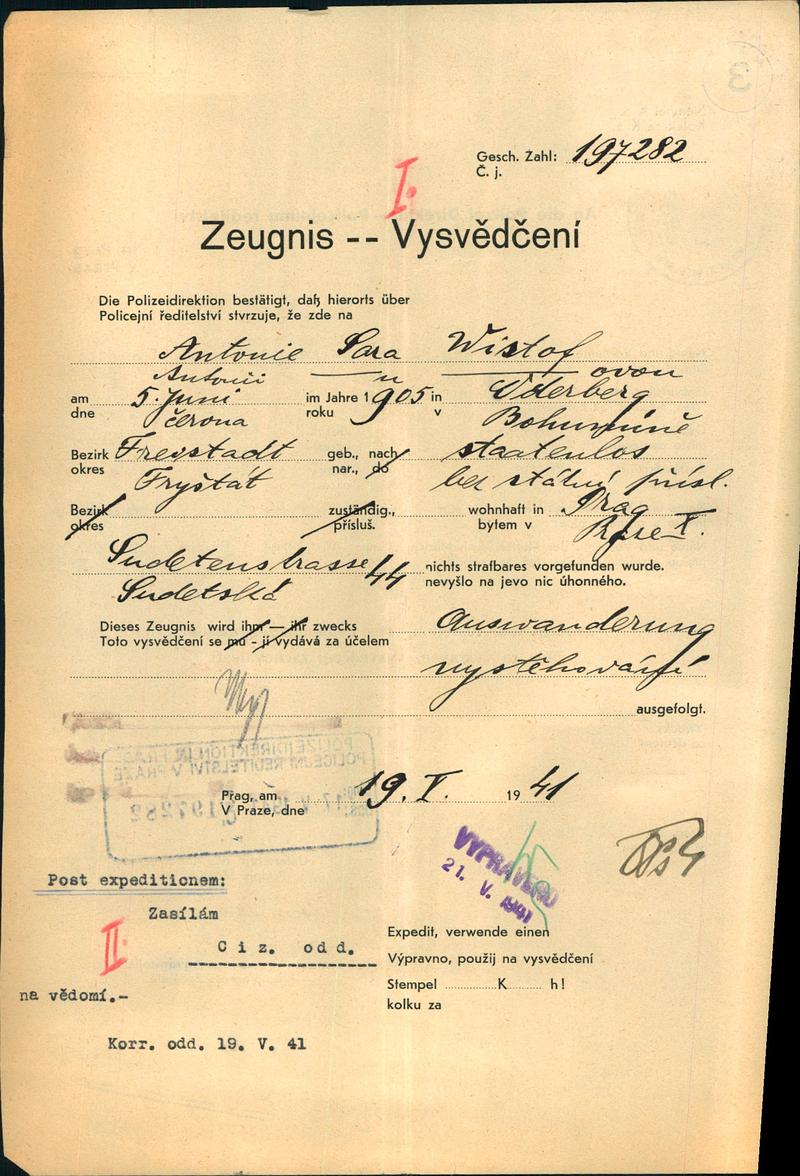 Gesch. Zahl: 197282
Č. j.
I.
Zeugnis -- Vysvědčení
Die Polizeidirektion bestätigt, daß hierorts über
Policejní ředitelství stvrzuje, že zde na
Antonie Sara Wistof
Antonii — u — ovou
am 5. Juni im Jahre 1905 in Oderberg
dne června roku v Bohumíně
Bezirk Freistadt geb., nach staatenlos
okres Fryštát nar., do bez státní přísl.
Bezirk zuständig., wohnhaft in Prag
okres přísluš. bytem v Praze X.
Sudetenstrasse 44 nichts strafbares vorgefunden wurde.
Sudetská nevyšlo na jevo nic úhonného.
Dieses Zeugnis wird ihm — ihr zwecks Auswanderung
Toto vysvědčení se mu - jí vydává za účelem
vystěhování
ausgefolgt.
POLIZEIDIREKTION IN PRAG
POLICEJNÍ ŘEDITELSTVÍ V PRAZE
197282
Prag, am 19. V. 1941
V Praze, dne
VYPRAVENO
21. V. 1941
Post expeditionem:
Zasílám
II.
Ciz. odd.
na vědomí.-
Korr. odd. 19. V. 41
Expedit, verwende einen
Výpravno, použij na vysvědčení
Stempel K h!
kolku za